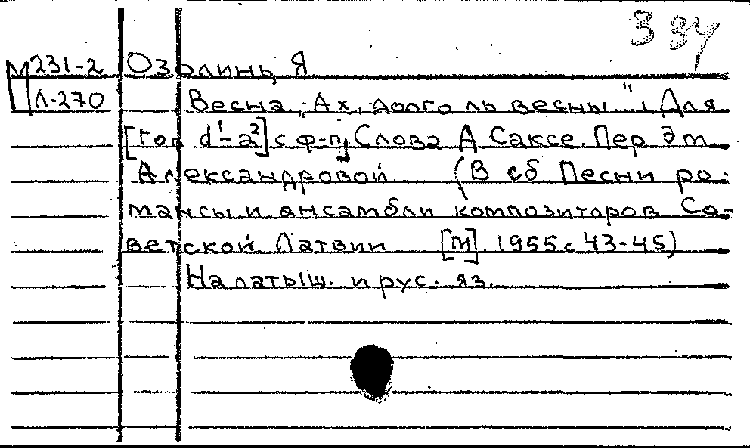 3 84
М231-2 Озолинь, Я
Л-270 Весна „Ах, долго ль весны“. Для
[гол d¹-a²] с ф-п, Слова А Саксе. Пер Эт
Александровой (В сб Песни ро-
мансы и ансамбли композиторов Со-
ветской Латвии [М] 1955 с 43-45)
На латыш. и рус. яз.